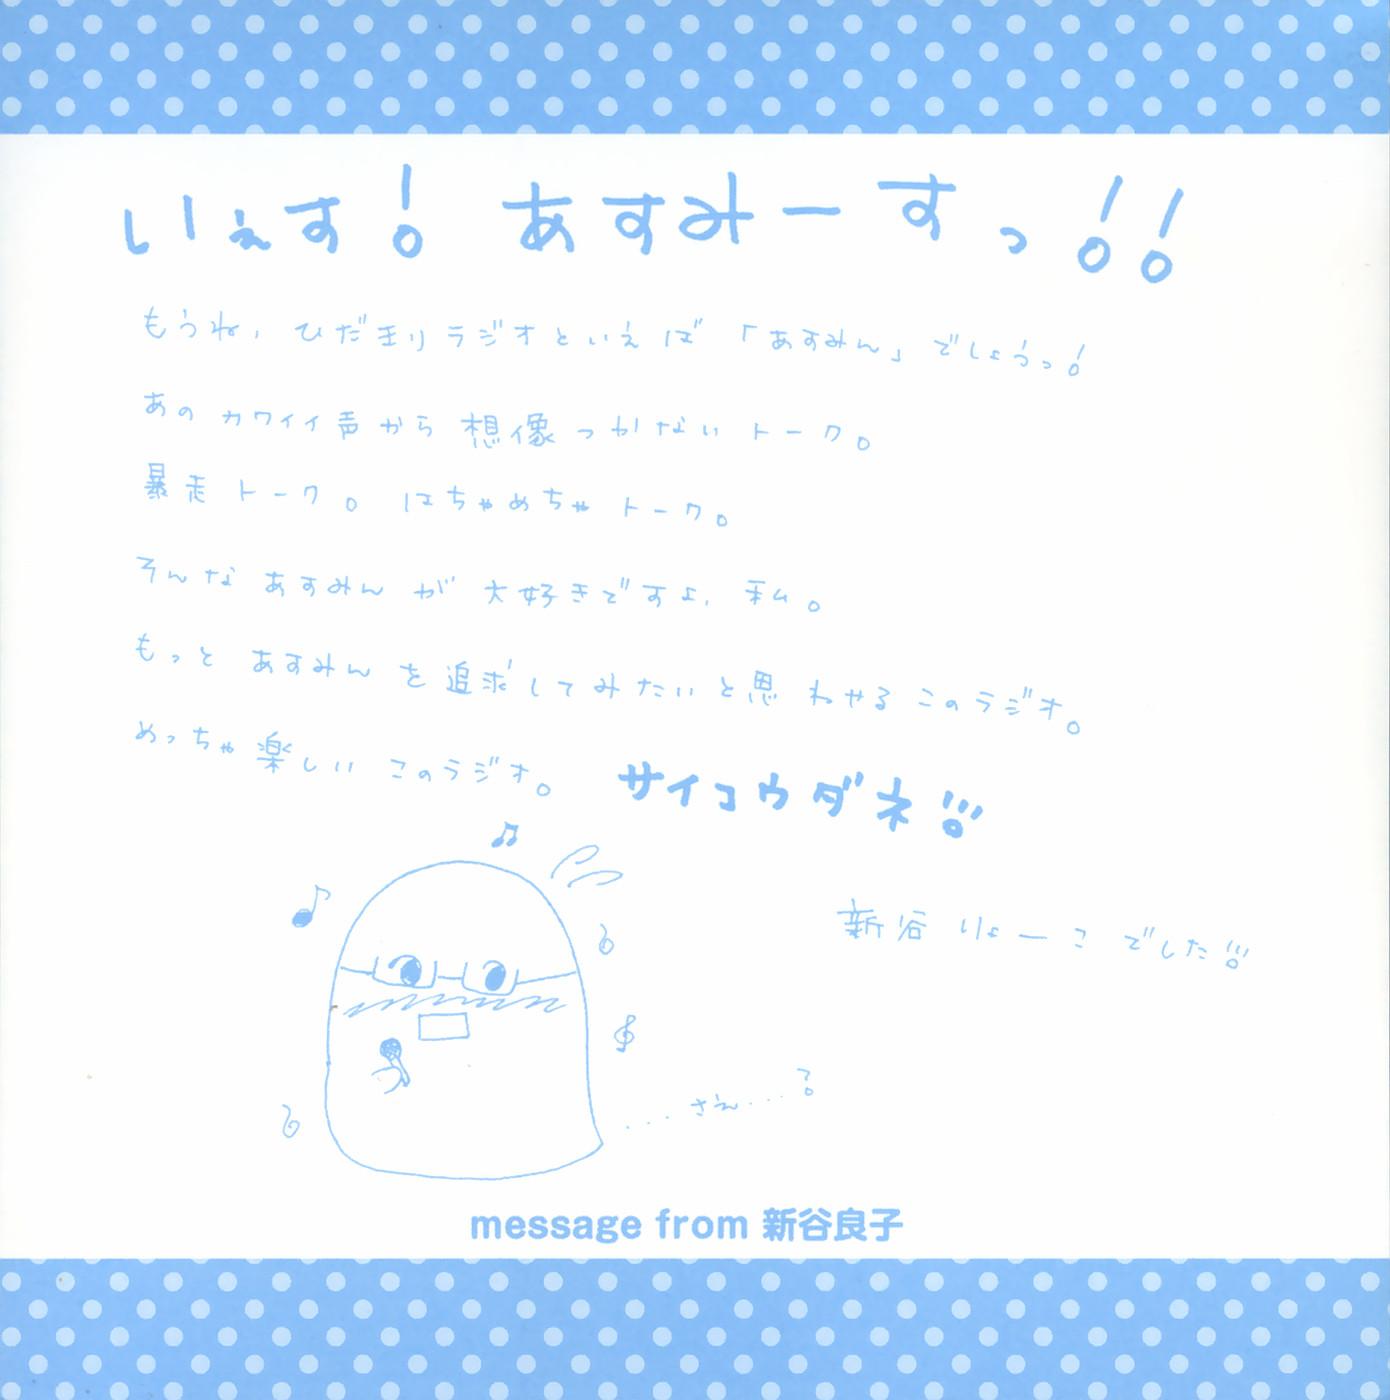 いぇす! あすみーすっ!!
もうね、ひだまりラジオといえば「あすみん」でしょうっ!
あのカワイイ声から想像つかないトーク。
暴走トーク。はちゃめちゃトーク。
そんなあすみんが大好きですよ、私。
もっとあすみんを追求してみたいと思わせるこのラジオ。
めっちゃ楽しいこのラジオ。 サイコウダネ!!!
新谷りょーこでした!!!
...さえ...?
message from 新谷良子